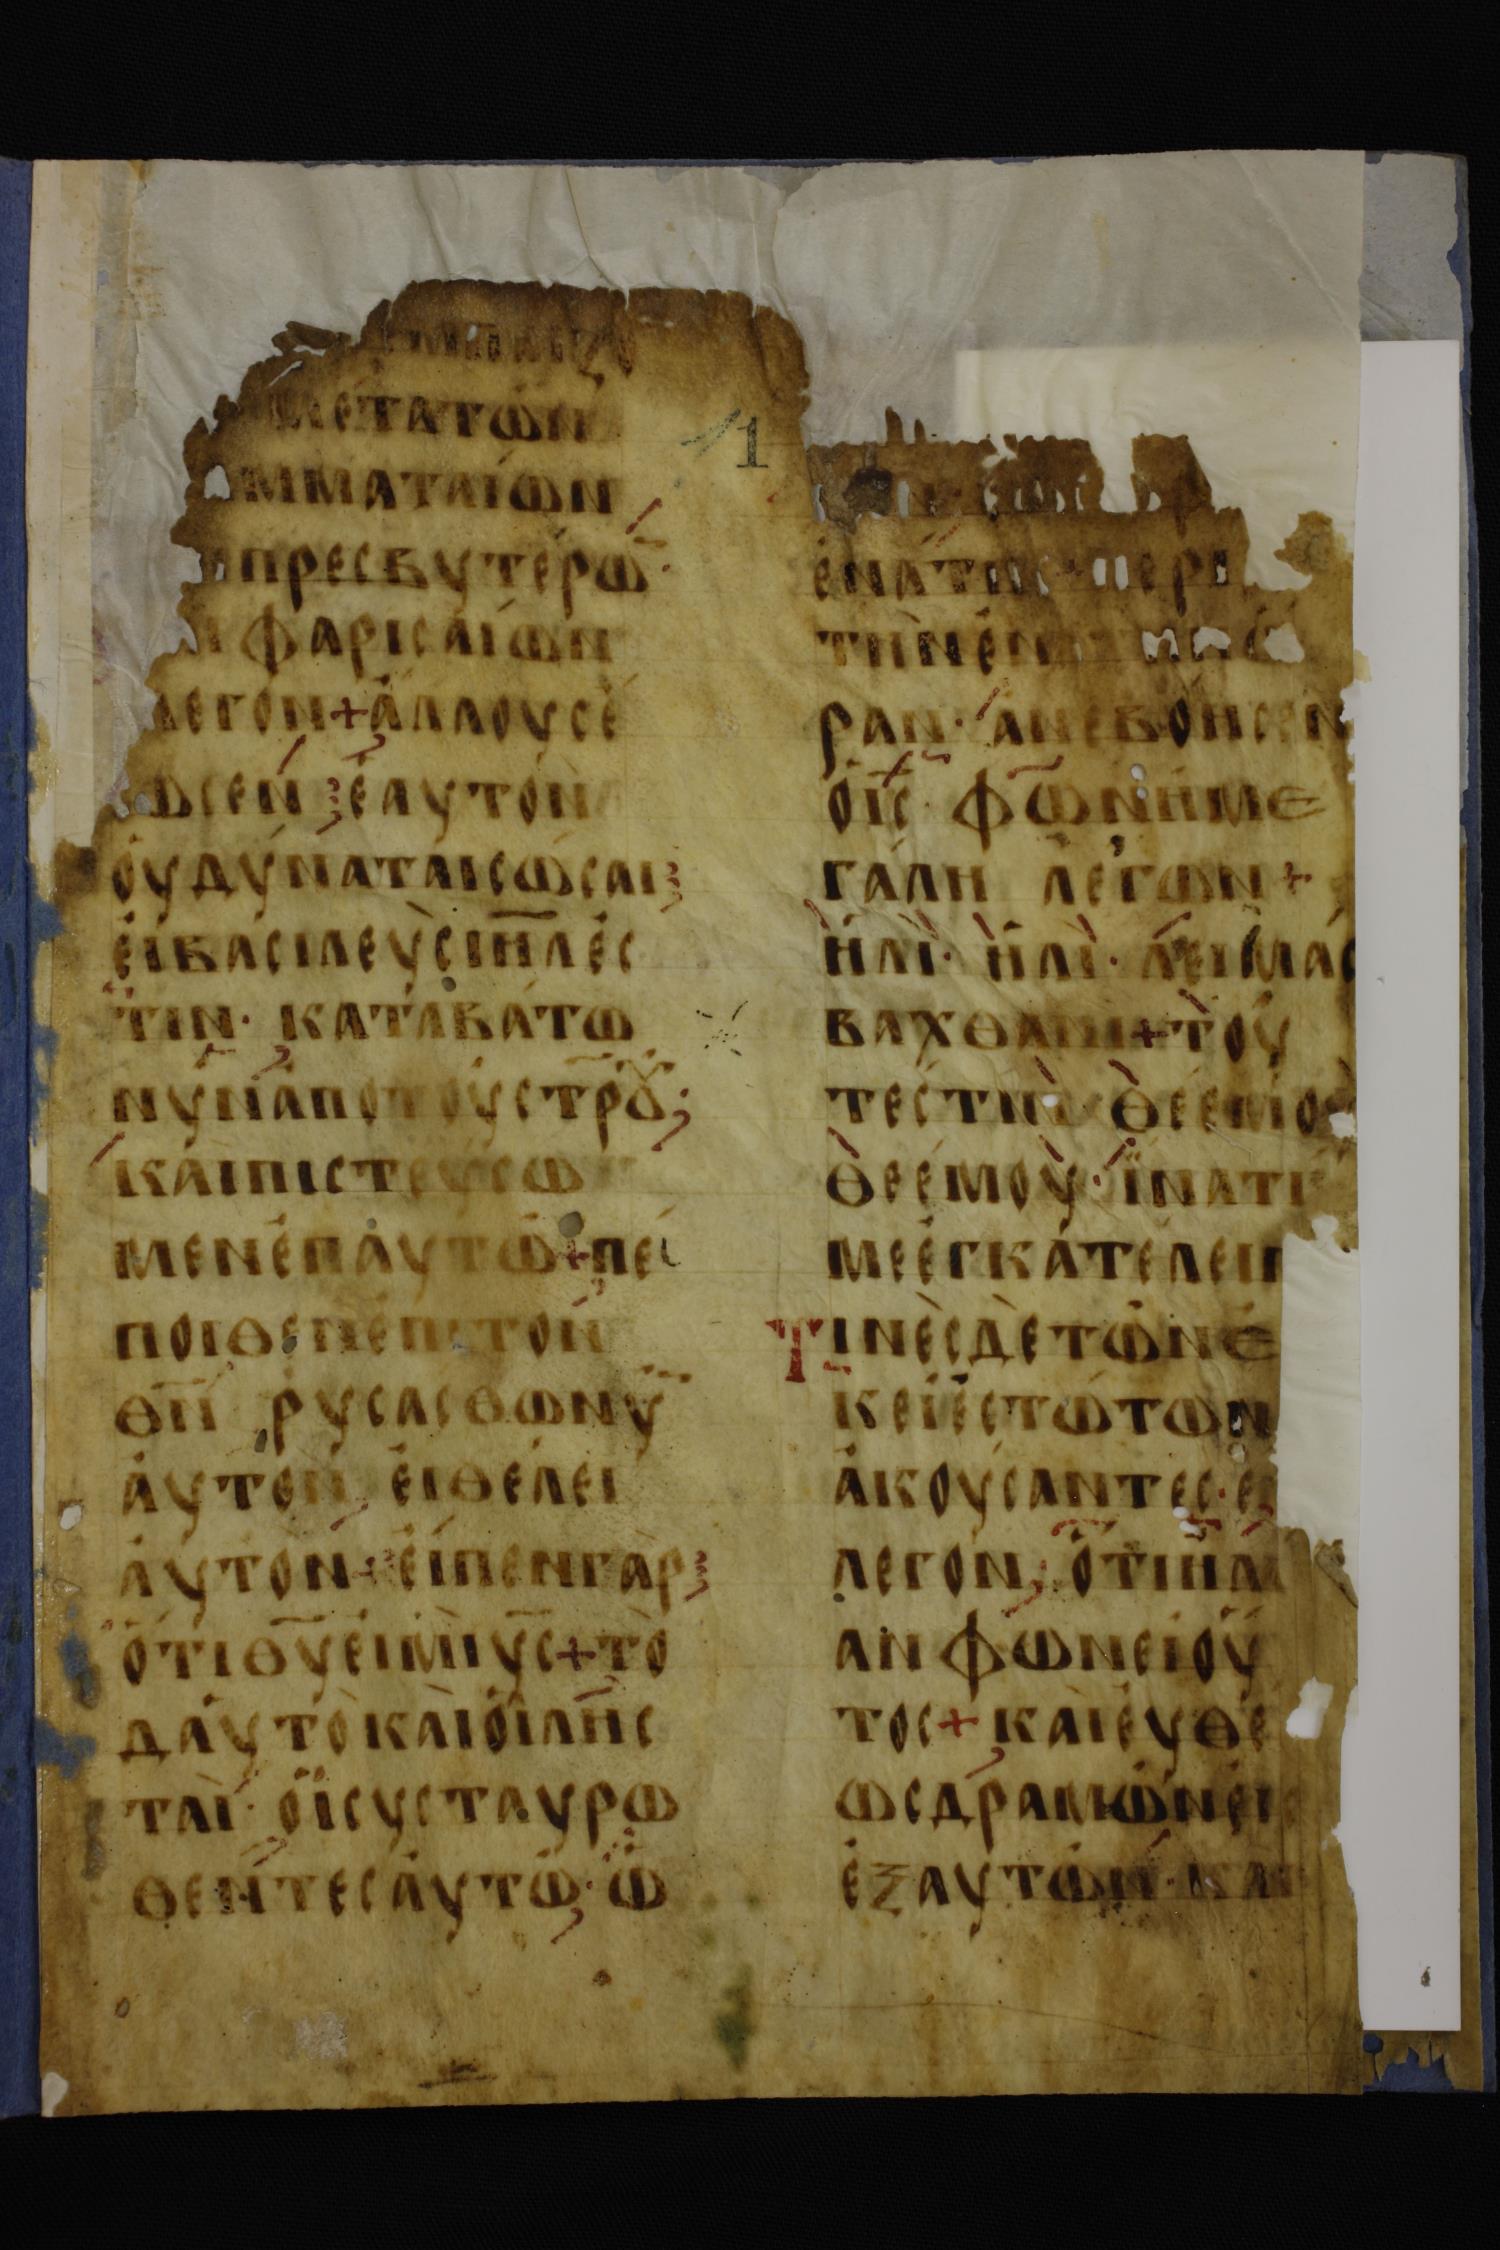 ΜΕΤΑΤΩΝ
ΜΜΑΤΑΙΩΝ
ΠΡΕСΒΥΤΕΡΩ
ΦΑΡΙСΑΙΩΝ
ΛΕΓΟΝ+ΑΛΛΟΥСΕ
ΩСΕΝ ΕΑΥΤΟΝ
ΟΥΔΥΝΑΤΑΙСΩСΑΙ
ΕΙΒΑСΙΛΕΥСΙΗΛΕС
ΤΙΝ· ΚΑΤΑΒΑΤΩ
ΝΥΝΑΠΟΤΟΥСΤΡΟΥ
ΚΑΙΠΙСΤΕΥСΩ
ΜΕΝΕΠΑΥΤΩ+ΠΕ
ΠΟΙΘΕΝΕΠΙΤΟΝ
ΘΝ ΡΥСΑСΘΩΝΥ
ΑΥΤΟΝ ΕΙΘΕΛΕΙ
ΑΥΤΟΝ+ΕΙΠΕΝΓΑΡ
ΟΤΙΘΥΕΙΜΙΥС+ΤΟ
ΔΑΥΤΟΚΑΙΟΙΛΗС
ΤΑΙ· ΟΙСΥСΤΑΥΡΩ
ΘΕΝΤΕСΑΥΤΩ· Ω
1
ΕΝΑΤΗС+ΠΕΡΙ
ΤΗΝΕΝ
ΡΑΝ· ΑΝΕΒΟΗСΕΝ
ΟΙС· ΦΩΝΗΜΕ
ΓΑΛΗ ΛΕΓΩΝ+
ΗΛΙ· ΗΛΙ· ΛΕΙΜΑС
ΒΑΧΘΑΝΙ+ΤΟΥ
ΤΕСΤΙΝ ΘΕΕΜΟΥ
ΘΕΕΜΟΥ· ΪΝΑΤΙ
ΜΕΕΓΚΑΤΕΛΕΙΠ
ΤΙΝΕСΔΕΤΩΝΕ
ΚΕΙΕСΤΩΤΩΝ
ΑΚΟΥСΑΝΤΕС· Ε
ΛΕΓΟΝ· ΟΤΙΗΛΙ
ΑΝ ΦΩΝΕΙΟΥ
ΤΟС+ΚΑΙΕΥΘΕ
ΩСΔΡΑΜΩΝΕΙС
ΕΞΑΥΤΩΝ· ΚΑΙ